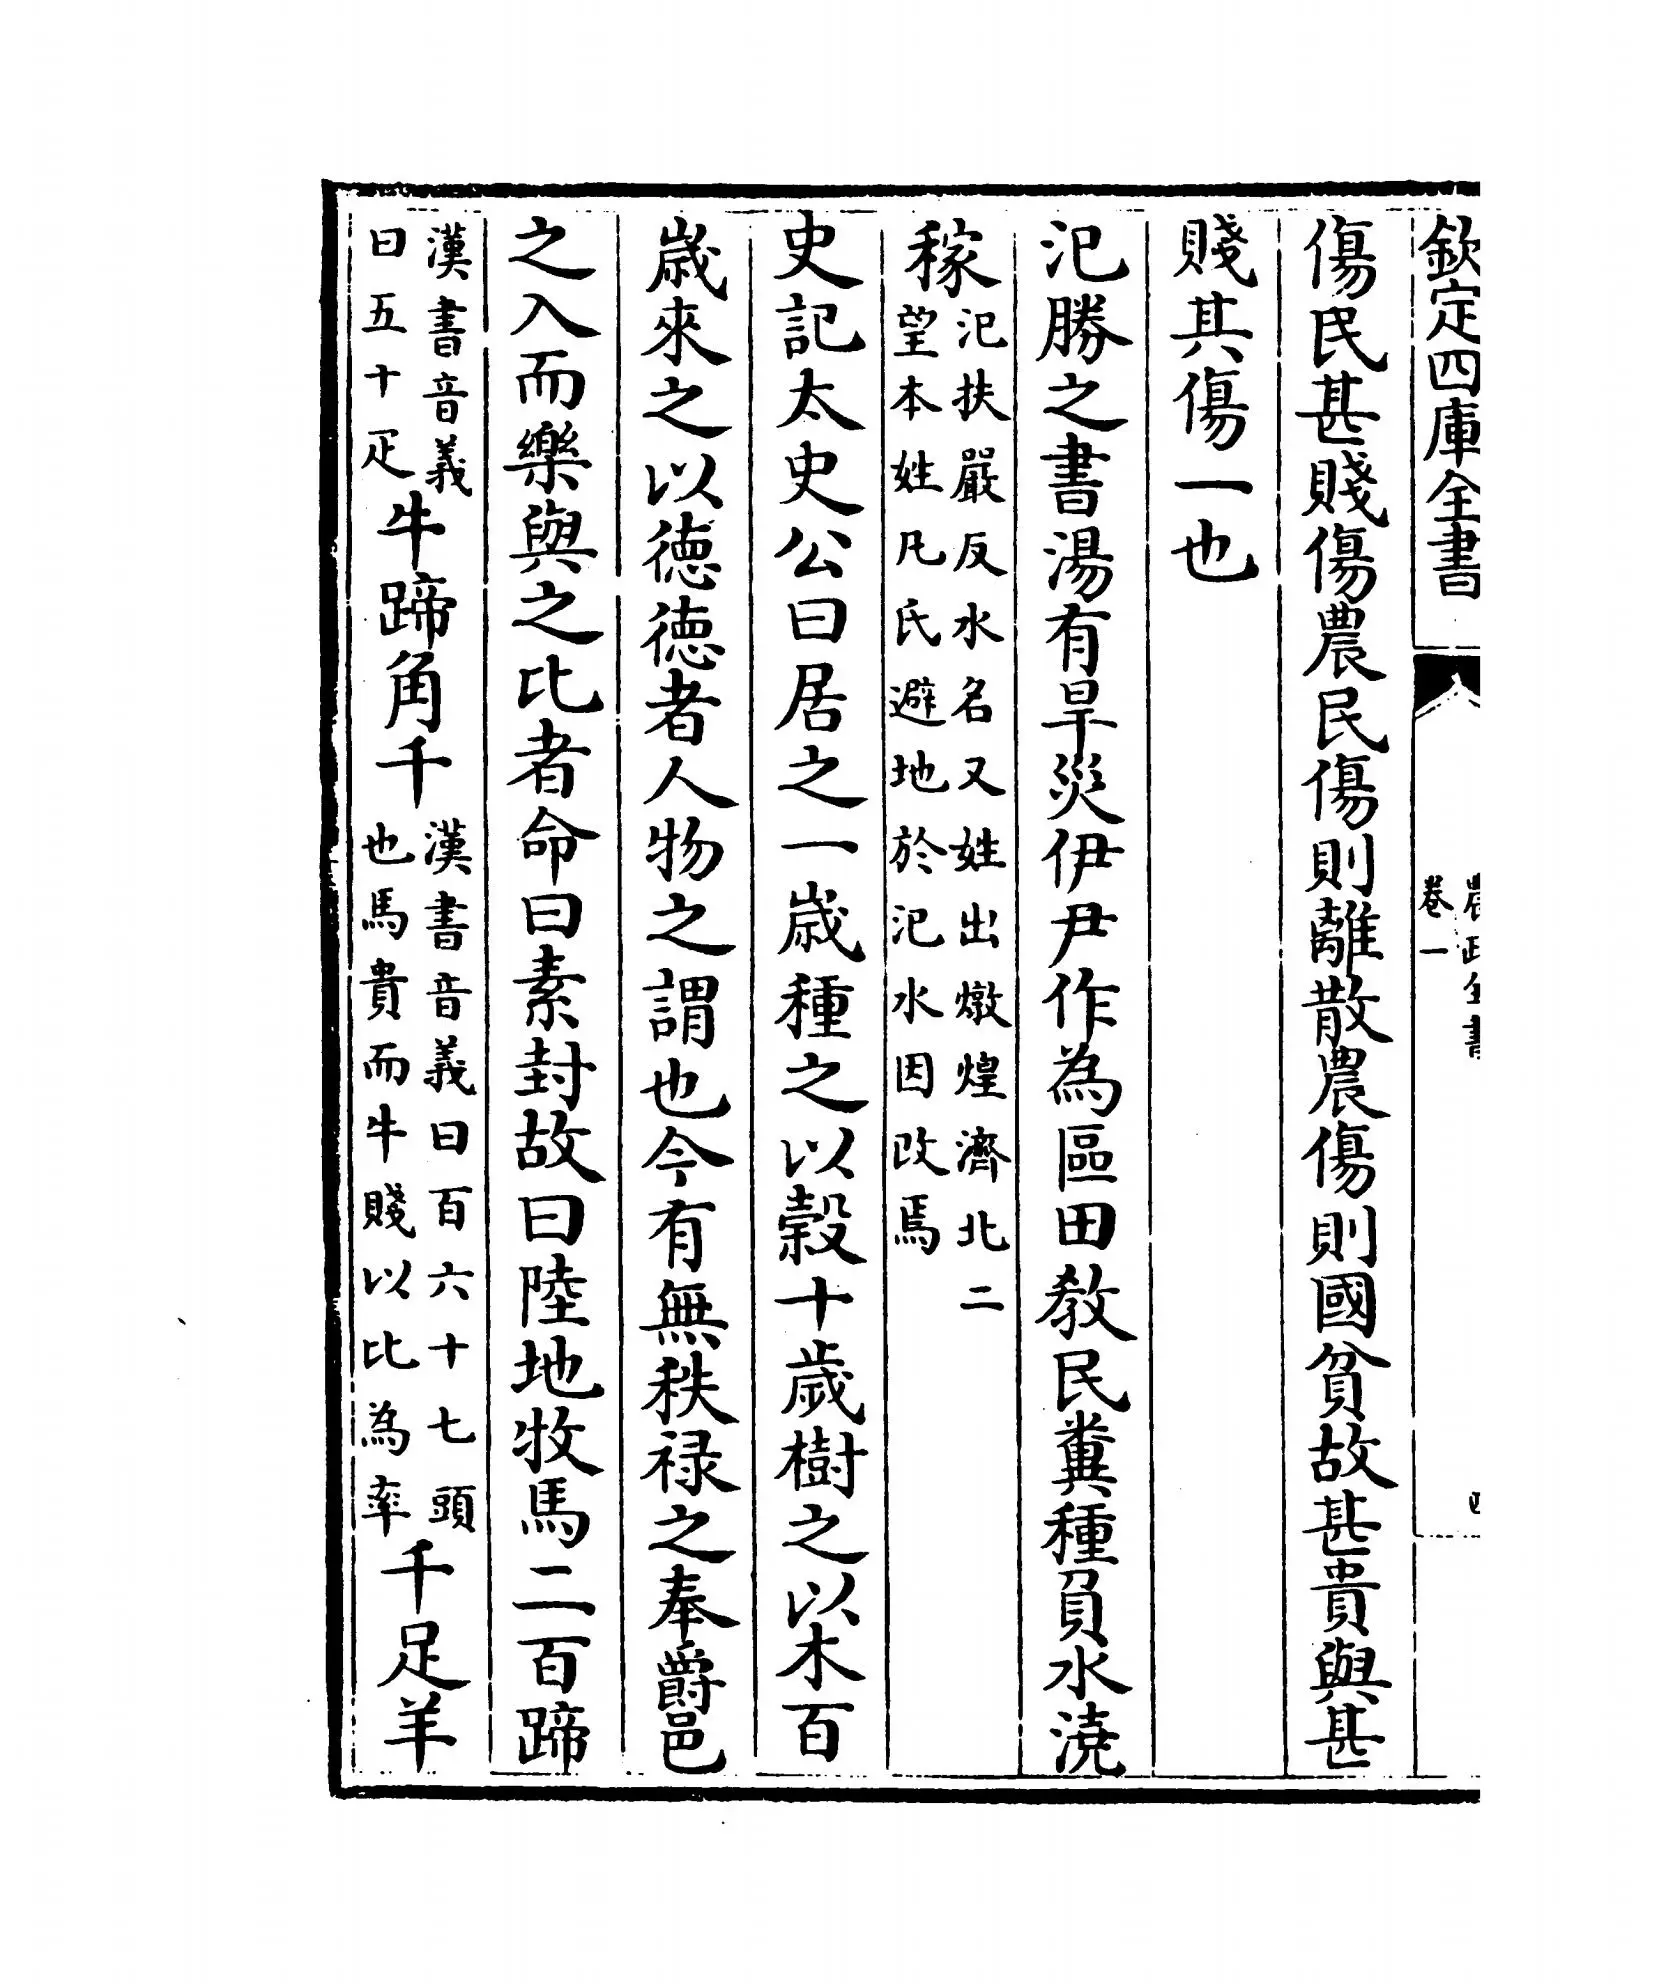 欽定四庫全書
農政全書
卷一
傷民甚賤傷農民傷則離散農傷則國貧故甚貴與甚
賤其傷一也
氾勝之書湯有旱災伊尹作為區田教民糞種負水澆
稼氾扶嚴反水名又姓出燉煌濟北二望本姓凡氏避地於氾水因改焉
史記太史公曰居之一歲種之以穀十歲樹之以木百
歲來之以德德者人物之謂也今有無秩禄之奉爵邑
之入而樂與之比者命曰素封故曰陸地牧馬二百蹄
漢書音義曰五十疋牛蹄角千漢書音義曰百六十七頭也馬貴而牛賤以比為率千足羊